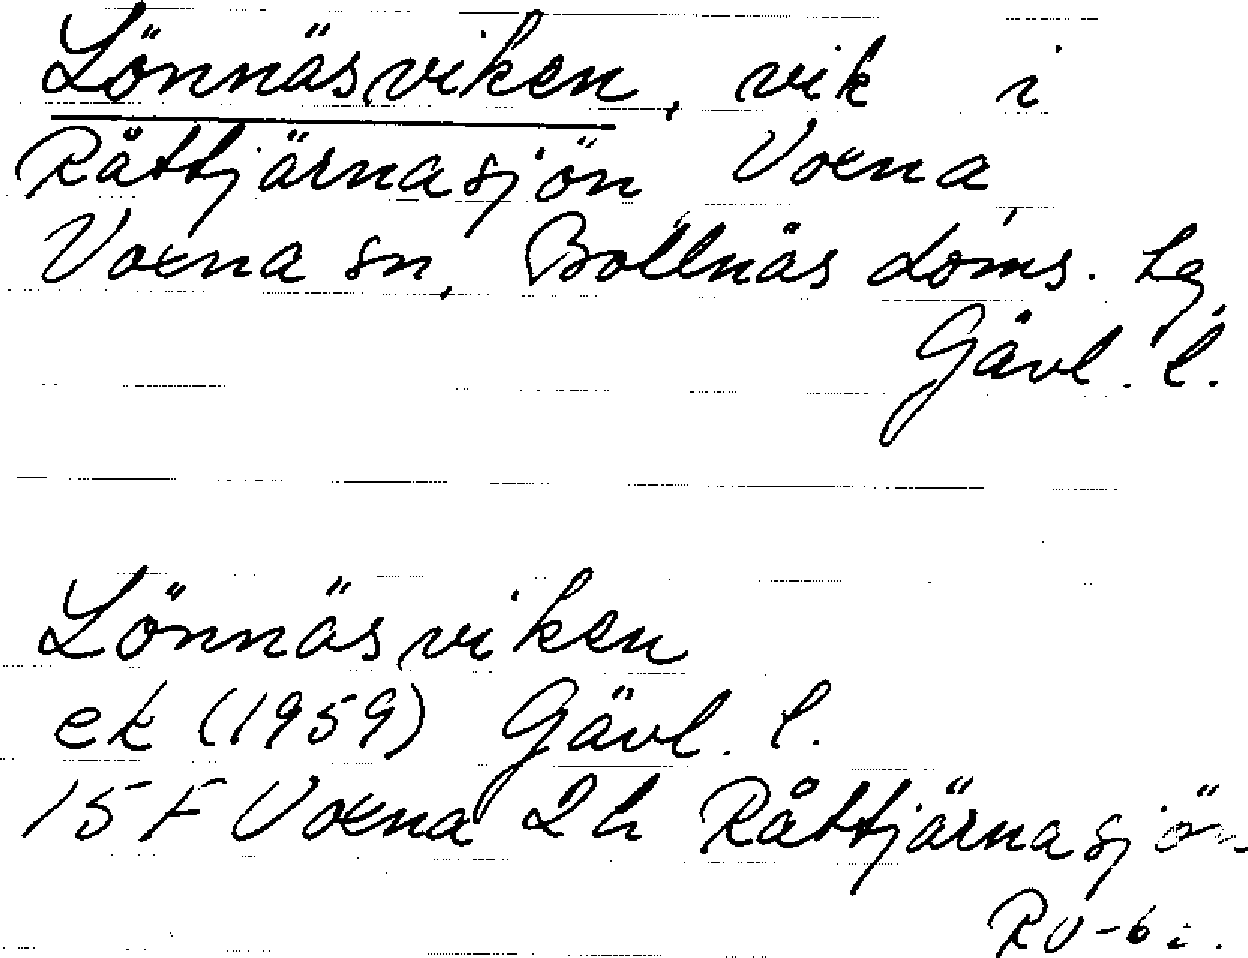 Lönnäsviken, vik i
Råttjärnasjön Voxna,
Voxna sn, Bollnäs doms. lg,
Gävl. l.
Lönnäsviken
ek (1959) Gävl. l.
15 F Voxna 2 h Råttjärnasjön